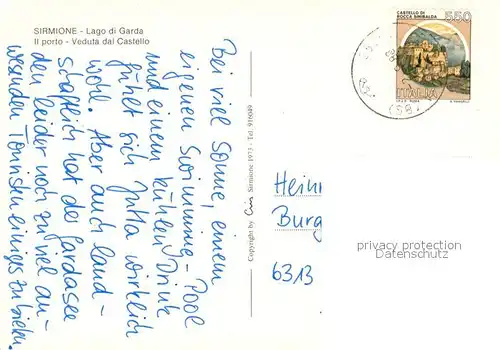 SIRMIONE - Lago di Garda
Il porto - Veduta dal Castello
Bei viel Sonne, einem
eigenen Swimming-Pool
und einem kühlen Drink
fühlt sich Jutta wirklich
wohl. Aber auch land-
schaftlich hat der Gardasee
den leider noch zu viel an-
wesenden Touristen einiges zu bieten.
Copyright by Sirmione 1973 - Tel. 916049
CASTELLO DI
ROCCA SINIBALDA
550
ITALIA
Heinr
Burg
6313
privacy protection
Datenschutz